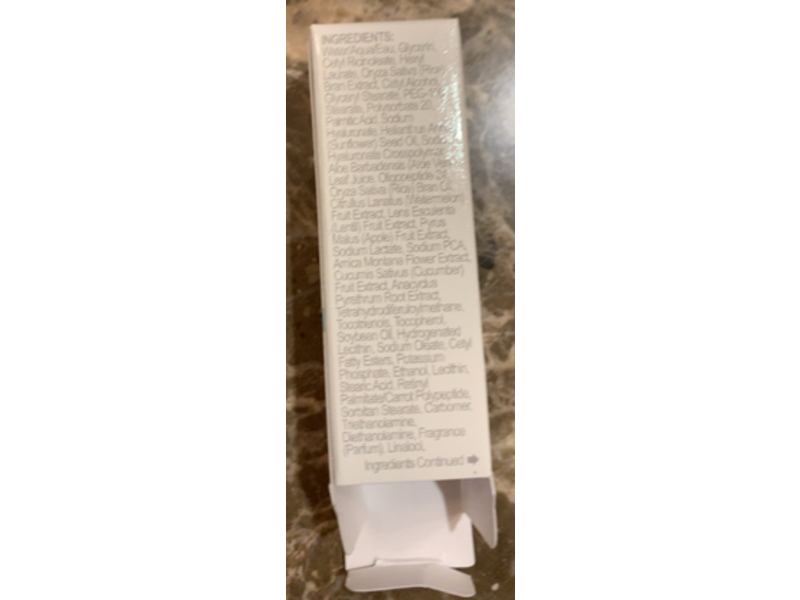 INGREDIENTS:
Water/Aqua/Eau, Glycerin,
Cetyl Ricinoleate, Hexyl
Laurate, Oryza Sativa (Rice)
Bran Extract, Cetyl Alcohol,
Glyceryl Stearate, PEG-100
Stearate, Polysorbate 20,
Palmitic Acid, Sodium
Hyaluronate, Helianthus
(Sunflower) Seed Oil, Sodium
Hyaluronate Crosspolymer,
Aloe Barbadensis (Aloe Vera)
Leaf Juice, Oligopeptide 24,
Oryza Sativa (Rice) Bran Oil,
Citrullus Lanatus (Watermelon)
Fruit Extract, Lens Esculenta
(Lentil) Fruit Extract, Pyrus
Malus (Apple) Fruit Extract,
Sodium Lactate, Sodium PCA,
Arnica Montana Flower Extract,
Cucumis Sativus (Cucumber)
Fruit Extract, Anacyclus
Pyrethrum Root Extract,
Tetrahydrodiferuloylmethane,
Tocotrienols, Tocopherol,
Soybean Oil, Hydrogenated
Lecithin, Sodium Oleate, Cetyl
Fatty Esters, Potassium
Phosphate, Ethanol, Lecithin,
Stearic Acid, Retinyl
Palmitate/Carrot Polypeptide,
Sorbitan Stearate, Carbomer,
Triethanolamine,
Diethanolamine, Fragrance
(Parfum), Linalool,
Ingredients Continued